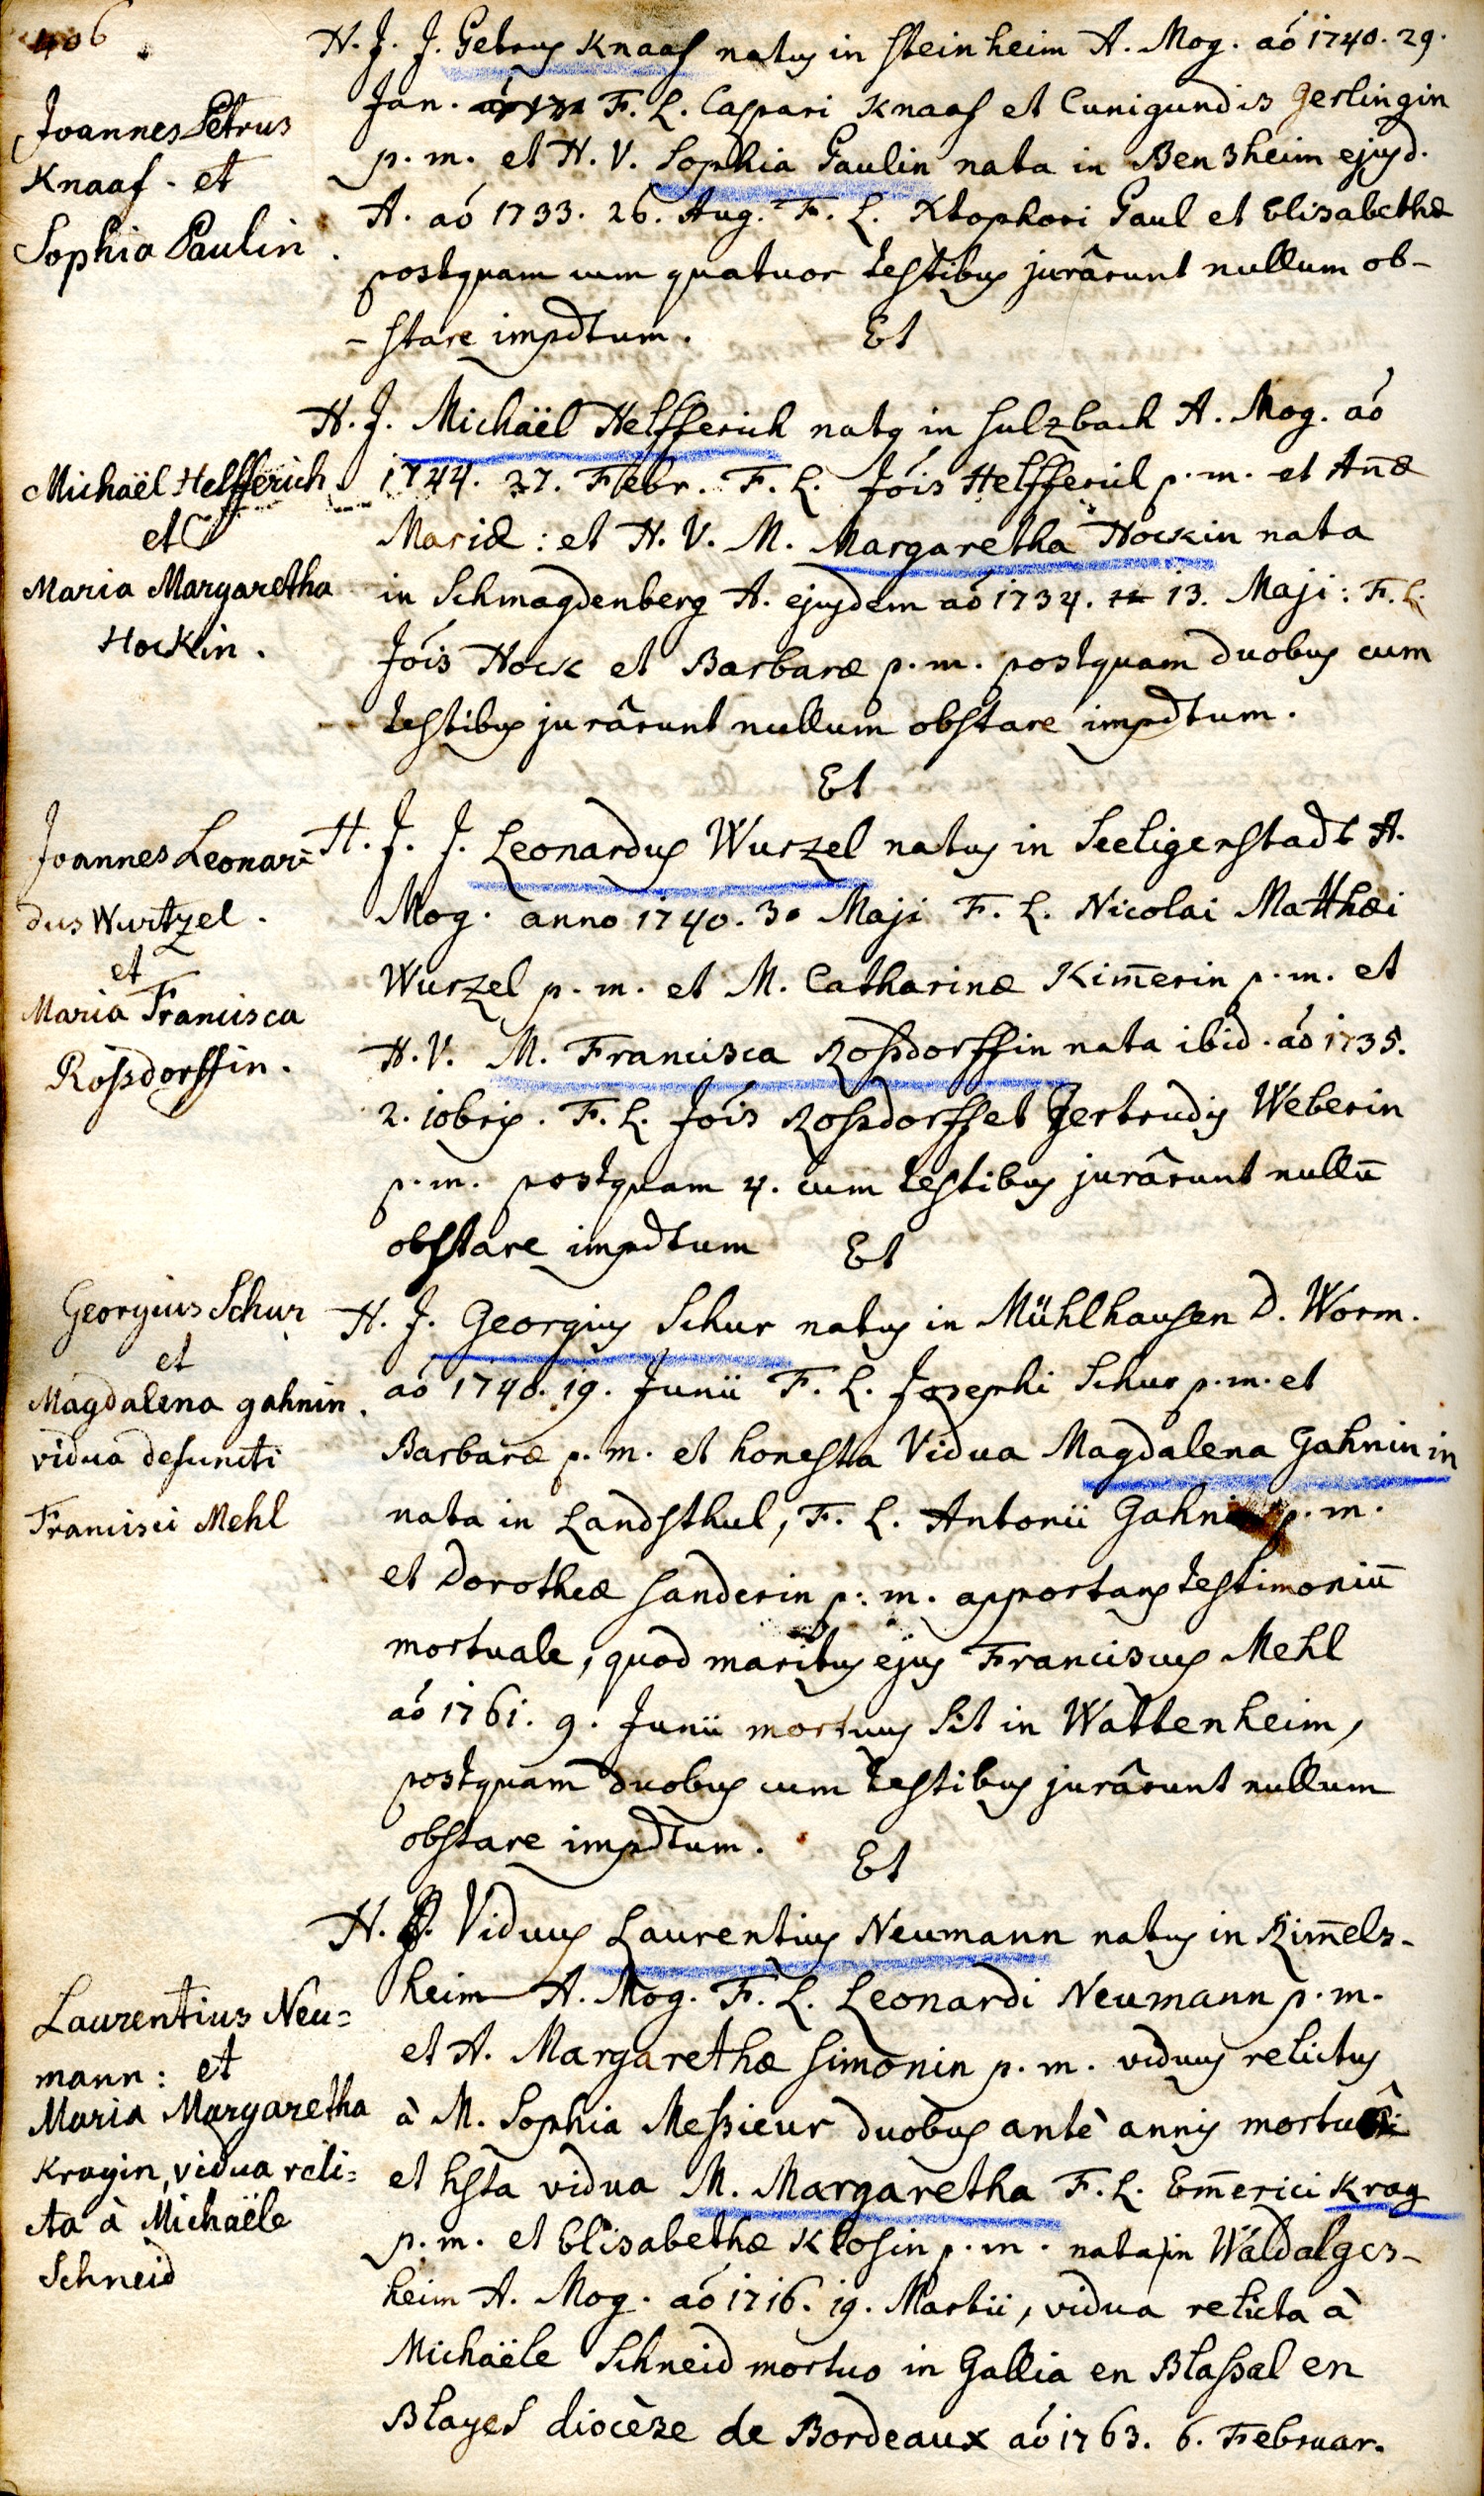 406
Joannes Petrus
Knaaf. et
Sophia Paulin
H. J. J. Petrus Knaaf natus in Steinheim A. Mog. aó 1740. 29.
Jan. F. L. Caspari Knaaf et Cunigundis Gerlingin
p. m. et H. V. Sophia Paulin nata in Bensheim ejusd.
A. aó 1733. 26. Aug. F. L. Xtophori Paul et Elisabethæ
postquam cum quatuor testibus jurârunt nullum ob-
-stare impdtum. Et
Michaël Helfferich
et
Maria Margaretha
Hockin.
H. J. Michaël Helfferich natq in Sulzbach A. Mog. aó
1744. 27. Febr. F. L. Jóis Helfferich p. m. et Añæ
Mariæ: et H. V. M. Margaretha Hockin nata
in Schmagdenberg A. ejusdem aó 1734. 13. Maji: F. L.
Jóis Hock et Barbaræ p. m. postquam duobus cum
testibus jurârunt nullum obstare impdtum.
Et
Joannes Leonar=
dus Wurtzel.
et
Maria Francisca
Roßdorffin.
H. J. J. Leonardus Wurzel natus in Seeligenstadt A.
Mog. anno 1740. 30 Maji F. L. Nicolai Matthæi
Wurzel p. m. et M. Catharinæ Kim̄erin p. m. et
H. V. M. Francisca Roßdorffin nata ibid. aó 1735.
2. 10bris. F. L. Jóis Roßdorff et Gertrudis Weberin
p. m. postquam 4. cum testibus jurârunt nullū
obstare impdtum Et
Georgius Schur
et
Magdalena gahnin
vidua defuncti
Francisci Mehl
H. J. Georgius Schur natus in Mühlhausen D. Worm.
aó 1740. 19. Junii F. L. Josephi Schur p. m. et
Barbaræ p. m. et honesta Vidua Magdalena Gahnin in
nata in Landsthul, F. L. Antonii Gahn p. m.
et Dorotheæ Sanderin p: m. apportans testimoniū
mortuale, quod maritus ejus Franciscus Mehl
aó 1761. 9. Junii mortuus sit in Wattenheim,
postquam duobus cum testibus jurârunt nullum
obstare impdtum. Et
Laurentius Neu=
mann: et
Maria Margaretha
Kragin, vidua reli=
cta à Michaële
Schneid
H. J. Viduus Laurentius Neumann natus in Rim̄els-
heim A. Mog. F. L. Leonardi Neumann p. m.
et A. Margarethæ Simonin p. m. viduus relictus
à M. Sophia Meßieur duobus antè annis mortuâ
et hsta vidua M. Margaretha F. L. Em̄erici Krag
p. m. et Elisabethæ Klosin p. m. nata in Waldalges-
heim A. Mog. aó 1716. 19. Martii, vidua relicta à
Michaële Schneid mortuo in Gallia en Blaßal en
Blayes diocèse de Bordeaux aó 1763. 6. Februar.